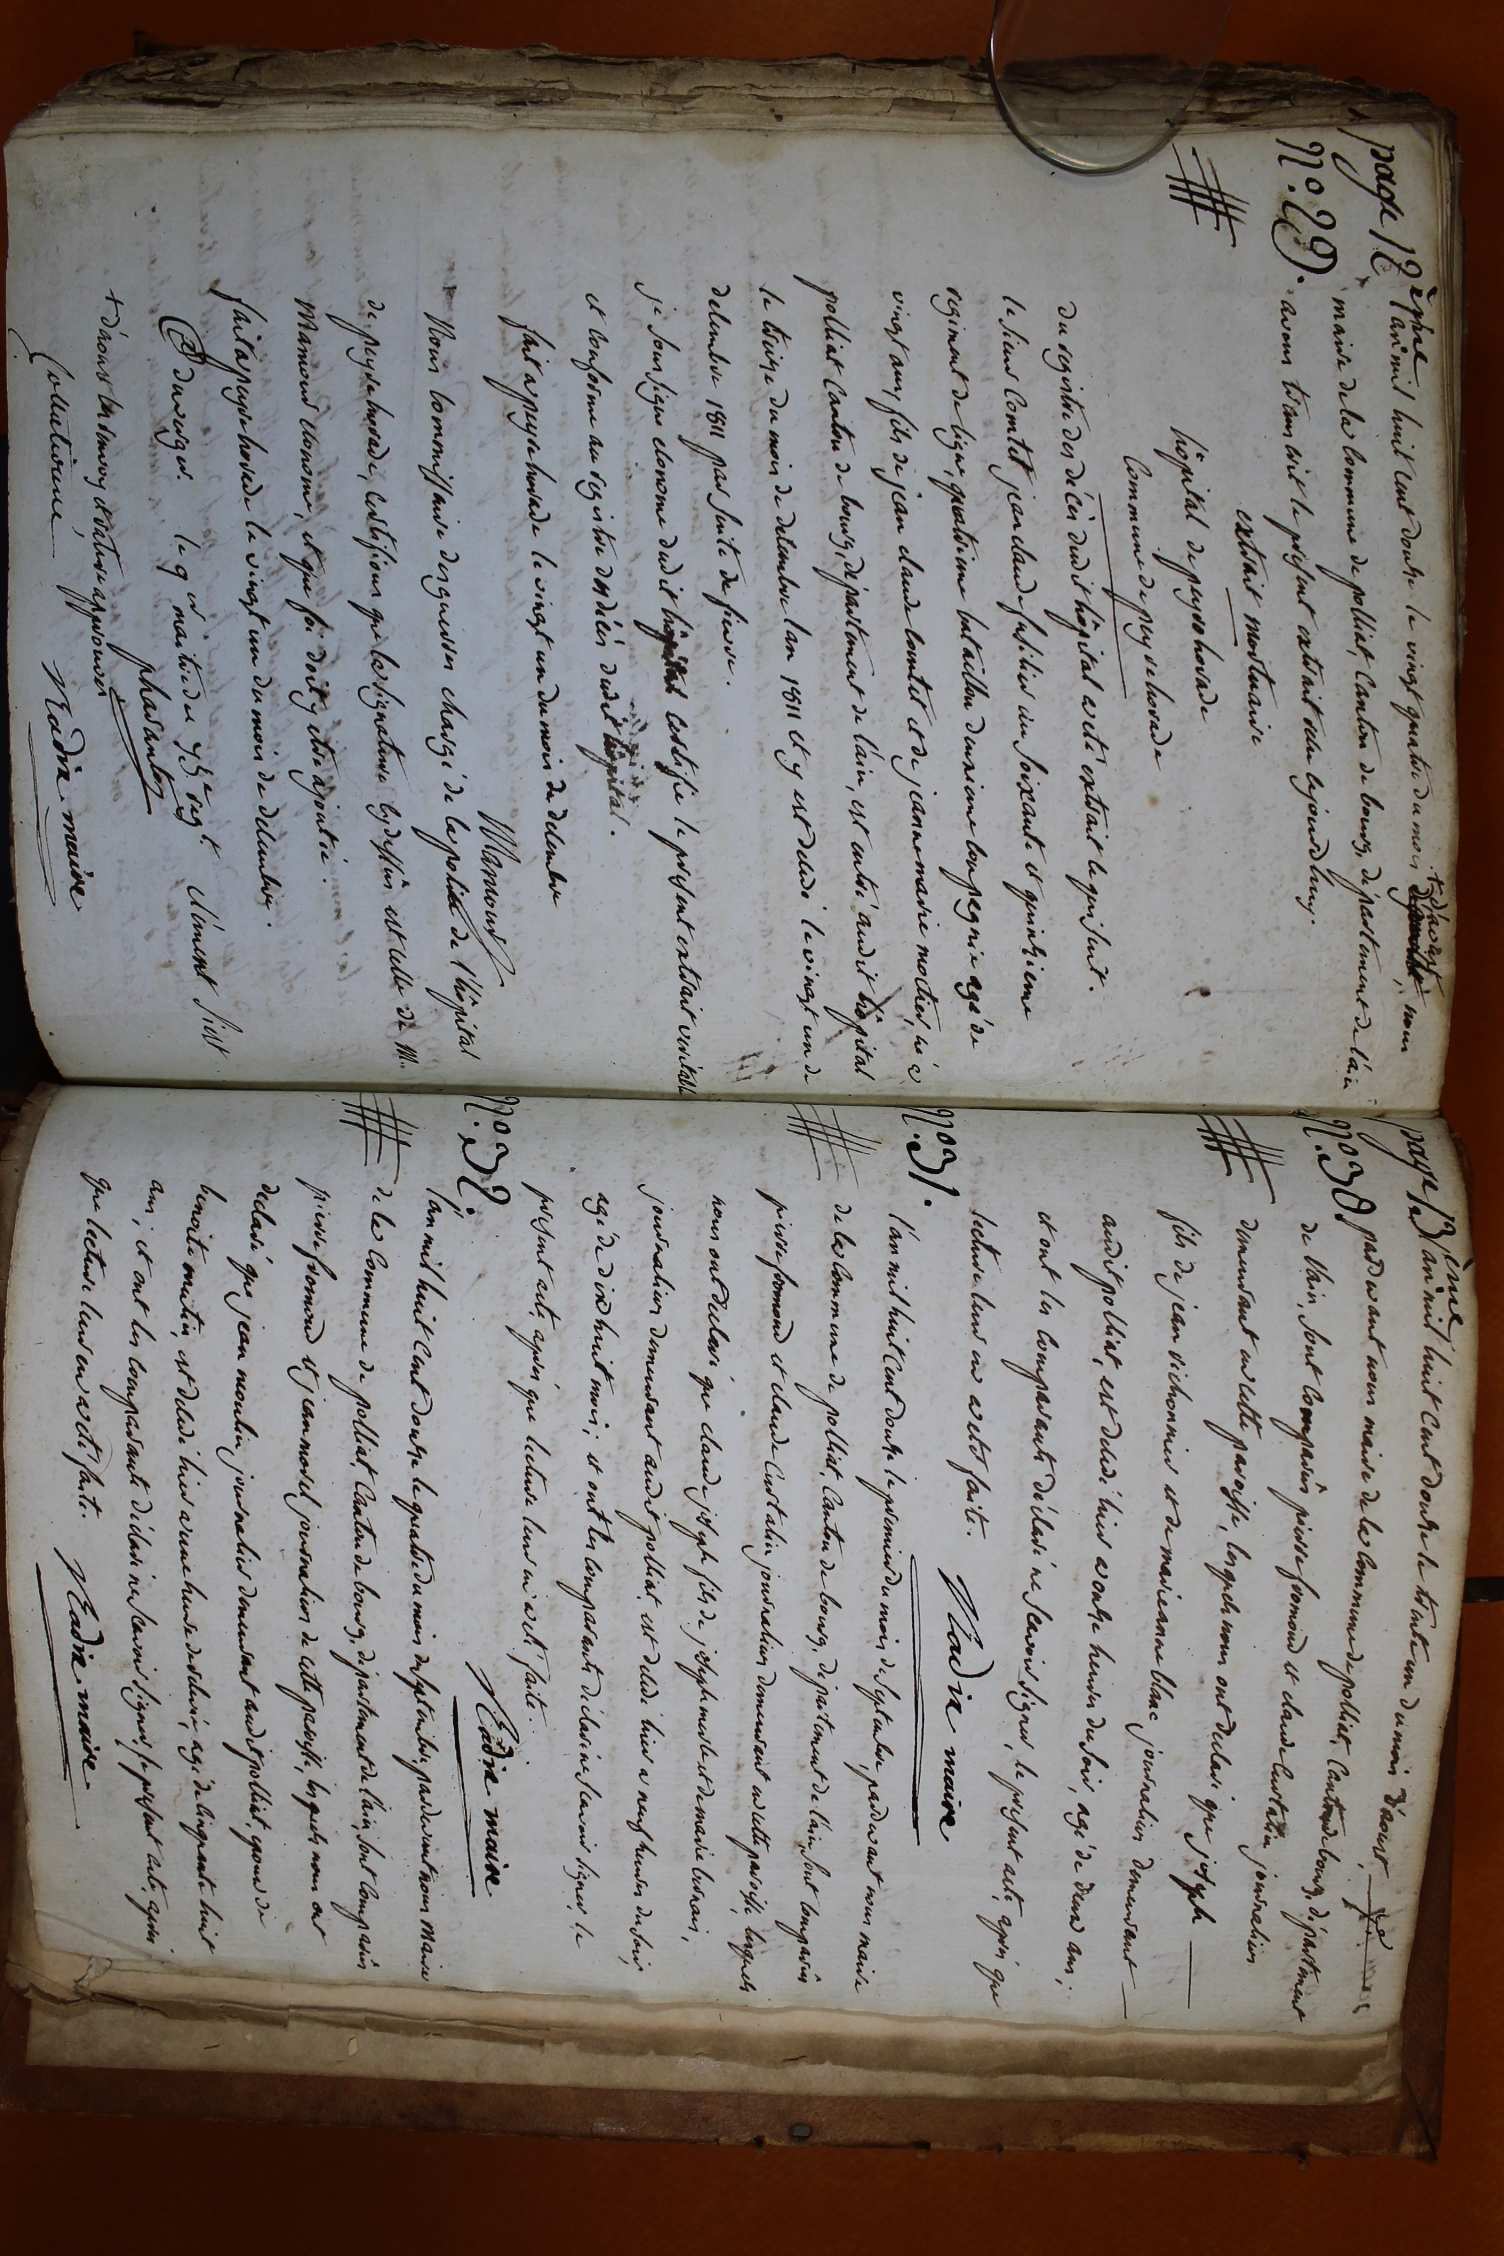 page 12 ème
L'an mil huit cent douze le vingt quatre du mois + d'aoust, nous
maire de la commune de polliat, canton de bourg, département de l'ain
N°. 29. avons transcrit le présent extrait reçu cejourd'huy.
extrait mortuaire
hôpital de peyrehorade
commune de peyrehorade
du registre des décès dudit hôpital a eté extrait ce qui suit.
le sieur Comtet jean claude fusilier au soixante et quinzieme
regiment de ligne, quatrieme bataillon deuxieme compagnie agé de
vingt ans, fils de jean claude comtet et de jeanne marie mother, né a
polliat canton de bourg, département de l'ain, est entré audit hôpital
le treize du mois de decembre l'an 1811 et y est décédé le vingt un de
decembre 1811 par suite de fievre.
je soussigné econome dudit hôpital certifie le présent extrait veritable
et conforme au registre des décès dudit hôpital.
fait a peyrehorade le vingt un du mois de decembre
Mamour
Nous commissaire des guerres chargé de la police de l'hôpital
de peyrehorade, certifions que la signature cy dessus est celle de M.
Mamour econome, et que foi doit y etre ajoutée.
fait a peyrehorade le vingt un du mois de decembre.
Duverger. le q er maitre du 75e regt. clément
+ d'aoust en renvoy et rature approuvés
Couturier
Nadra maire
page 13 ème
L'an mil huit cent douze le trente un du mois d'aoust,
N°. 30. par devant nous maire de la commune de polliat, canton de bourg, département
de l'ain, sont comparûs pierre fromond et claude Curtalin journaliers
demeurant en cette paroisse, lesquels nous ont declaré que joseph
fils de jean dichonnier et de marieanne blanc journaliers demeurant
audit polliat, est décédé hier a onze heures du soir, agé de deux ans;
et ont les comparants déclaré ne scavoir signer, le présent acte, après que
lecture leur en a eté faite.
Nadra maire
N°. 31.
L'an mil huit cent douze le premier du mois de septembre, pardevant nous maire
de la commune de polliat, canton de bourg, département de l'ain, sont comparûs
pierre fromond et claude Curtalin journaliers demeurant en cette paroisse, lesquels
nous ont declaré que claude joseph fils de joseph merle et de marie
journaliers demeurant audit polliat, est décédé hier a neuf heures du soir,
agé de dix huit mois; et ont les comparants déclaré ne scavoir signer, le
présent acte, après que lecture leur en a eté faite.
Nadra maire
N°. 32.
L'an mil huit cent douze le quatre du mois de septembre, pardevant nous maire
de la commune de polliat, canton de bourg, département de l'ain, sont comparûs
pierre fromond et jean morel journaliers de cette paroisse, lesquels nous ont
declaré que jean moulin, journalier demeurant audit polliat, epoux de
benoite est décédé hier a une heure de relevée, agé de cinquante huit
ans; et ont les comparants déclaré ne scavoir signer, le présent acte, après
que lecture leur en a eté faite.
Nadra maire